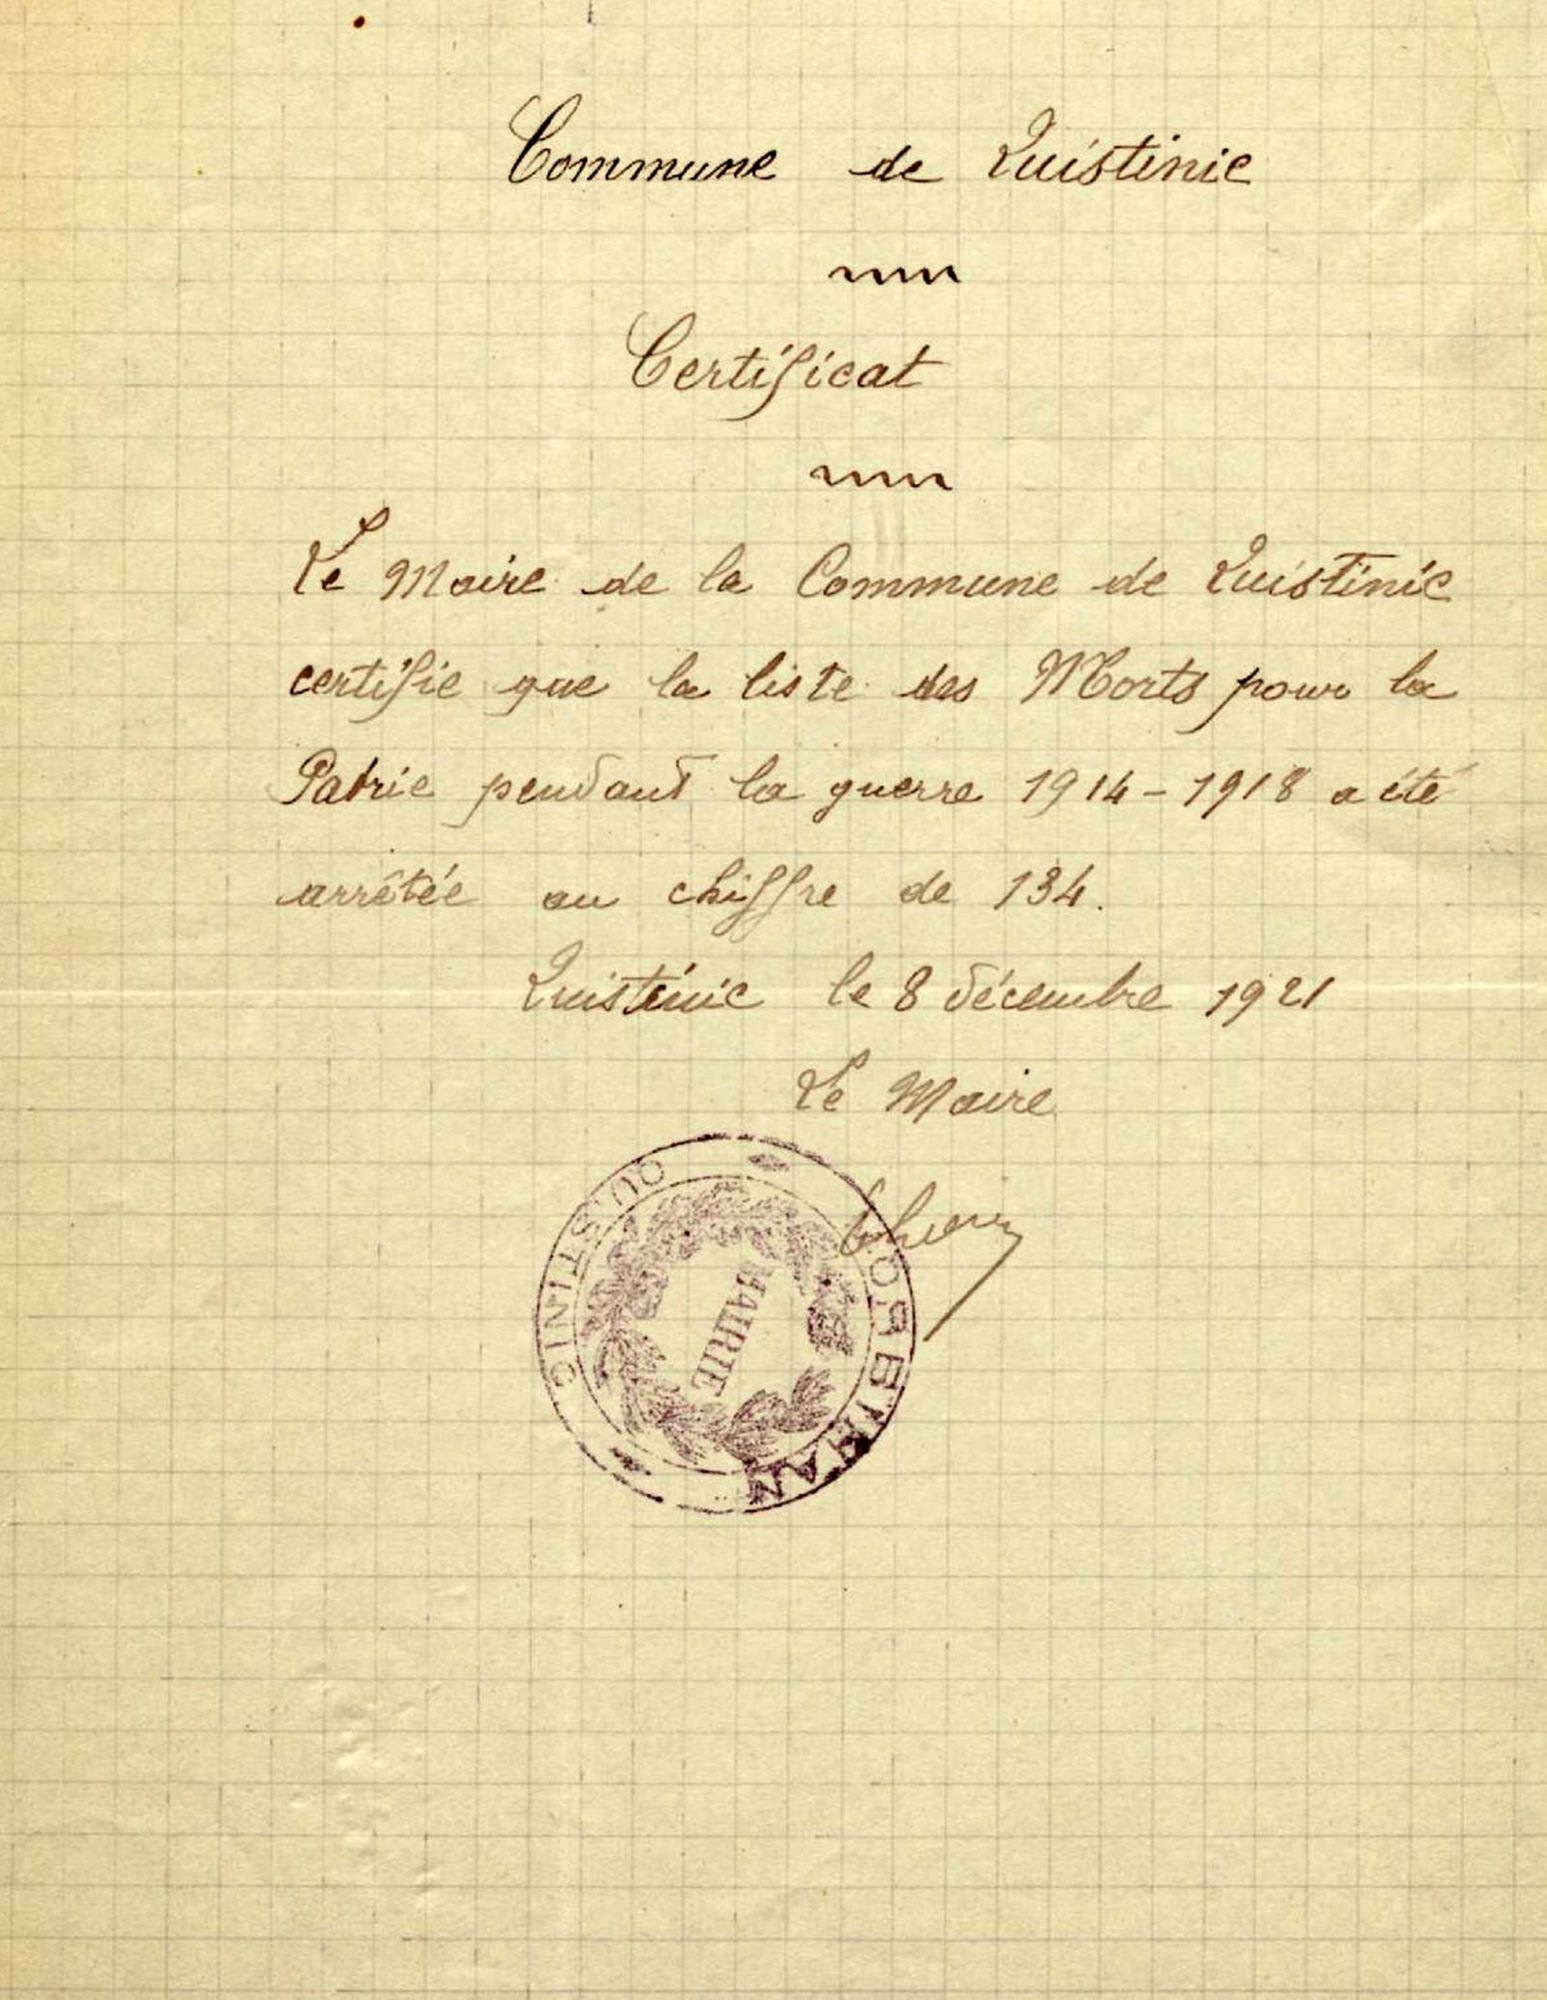 Commune de Quistinic
Certificat
Le Maire de la Commune de Quistinic
certifie que la liste des Morts pour la
Patrie pendant la guerre 1914-1918 a été
arrêtée au chiffre de 134.
Quistinic le 8 décembre 1921
Le Maire
QUISTINIC
MAIRIE
MORBIHAN